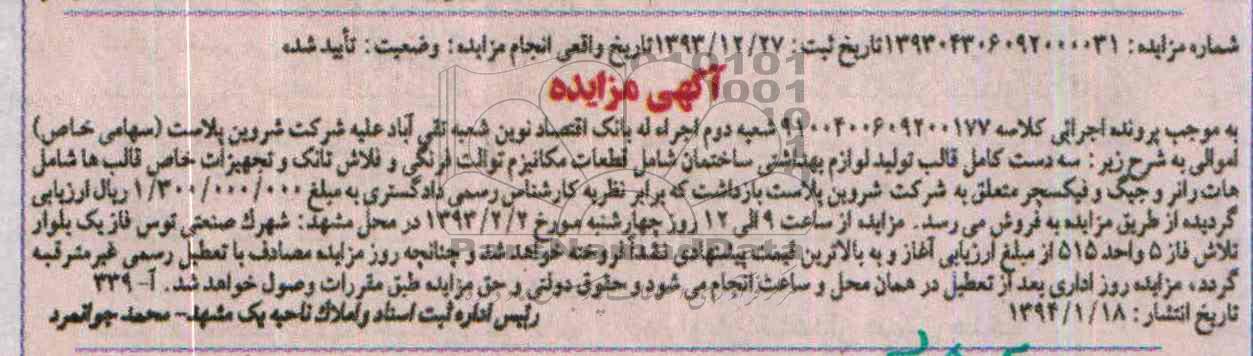 شماره مزایده: ۱۳۹۳۰۴۳۰۶۰۹۲۰۰۰۰۳۱ تاریخ ثبت: ۱۳۹۳/۱۲/۲۷ تاریخ واقعی انجام مزایده: وضعیت: تأیید شده
آگهی مزایده
به موجب پرونده اجرائی کلاسه ۹۱۰۰۴۰۰۶۰۹۲۰۰۱۷۷ شعبه دوم اجراء له بانک اقتصاد نوین شعبه تقی آباد علیه شرکت شروین پلاست (سهامی خاص)
اموالی به شرح زیر: سه دست کامل قالب تولید لوازم بهداشتی ساختمان شامل قطعات مکانیزم توالت فرنگی و فلاش تانک و تجهیزات خاص قالب ها شامل
هات رانر و جیگ و فیکسچر متعلق به شرکت شروین پلاست بازداشت که برابر نظریه کارشناس رسمی دادگستری به مبلغ ۱/۳۰۰/۰۰۰/۰۰۰ ریال ارزیابی
گردیده از طریق مزایده به فروش می رسد. مزایده از ساعت ۹ الی ۱۲ روز چهارشنبه مورخ ۱۳۹۴/۲/۲ در محل مشهد: شهرک صنعتی توس فاز یک بلوار
تلاش فاز ۵ واحد ۵۱۵ از مبلغ ارزیابی آغاز و به بالاترین قیمت پیشنهادی نقداً فروخته خواهد شد و چنانچه روز مزایده مصادف با تعطیل رسمی غیرمترقبه
گردد، مزایده روز اداری بعد از تعطیل در همان محل و ساعت انجام می شود و حقوق دولتی و حق مزایده طبق مقررات وصول خواهد شد. آ- ۳۳۹
تاریخ انتشار: ۱۳۹۴/۱/۱۸ رئیس اداره ثبت اسناد و املاک ناحیه یک مشهد- محمد جوانمرد